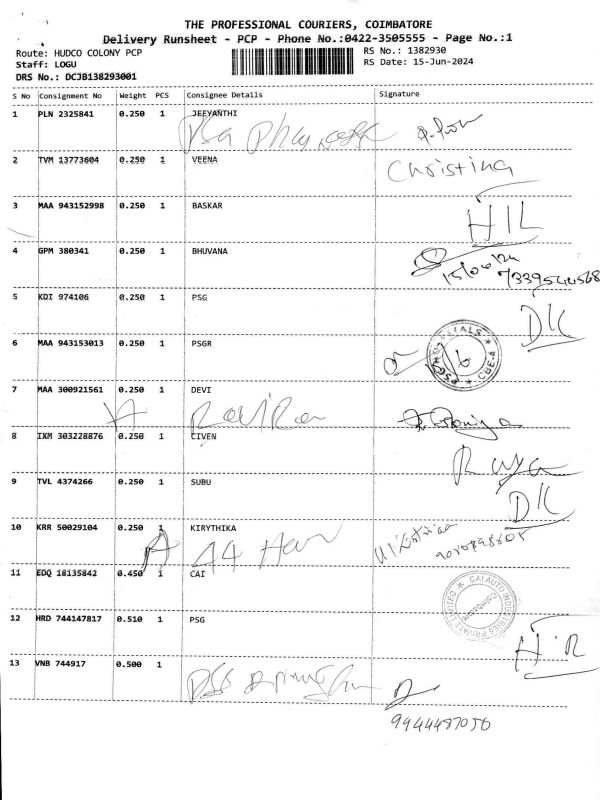 THE PROFESSIONAL COURIERS, COIMBATORE
Delivery Runsheet - PCP - Phone No.:0422-3505555 - Page No.:1
Route: HUDCO COLONY PCP RS No.: 1382930
Staff: LOGU RS Date: 15-Jun-2024
DRS No.: DCJB138293001
S No Consignment No Weight PCS Consignee Details Signature
1 PLN 2325841 0.250 1 JEEYANTHI
2 TVM 13773604 0.250 1 VEENA Christina
3 MAA 943152998 0.250 1 BASKAR HIL
4 GPM 380341 0.250 1 BHUVANA
15/06/24 7339544568
5 KDI 974106 0.250 1 PSG DK
6 MAA 943153013 0.250 1 PSGR
7 MAA 300921561 0.250 1 DEVI
8 IXM 303228876 0.250 1 CIVEN
9 TVL 4374266 0.250 1 SUBU DK
10 KRR 50029104 0.250 1 KIRYTHIKA
A 44
11 EDQ 18135842 0.450 1 CAI CAI AUTO INDUSTRIES PRIVATE LIMITED
12 HRD 744147817 0.510 1 PSG H.R
13 VNB 744917 0.500 1
9944487056